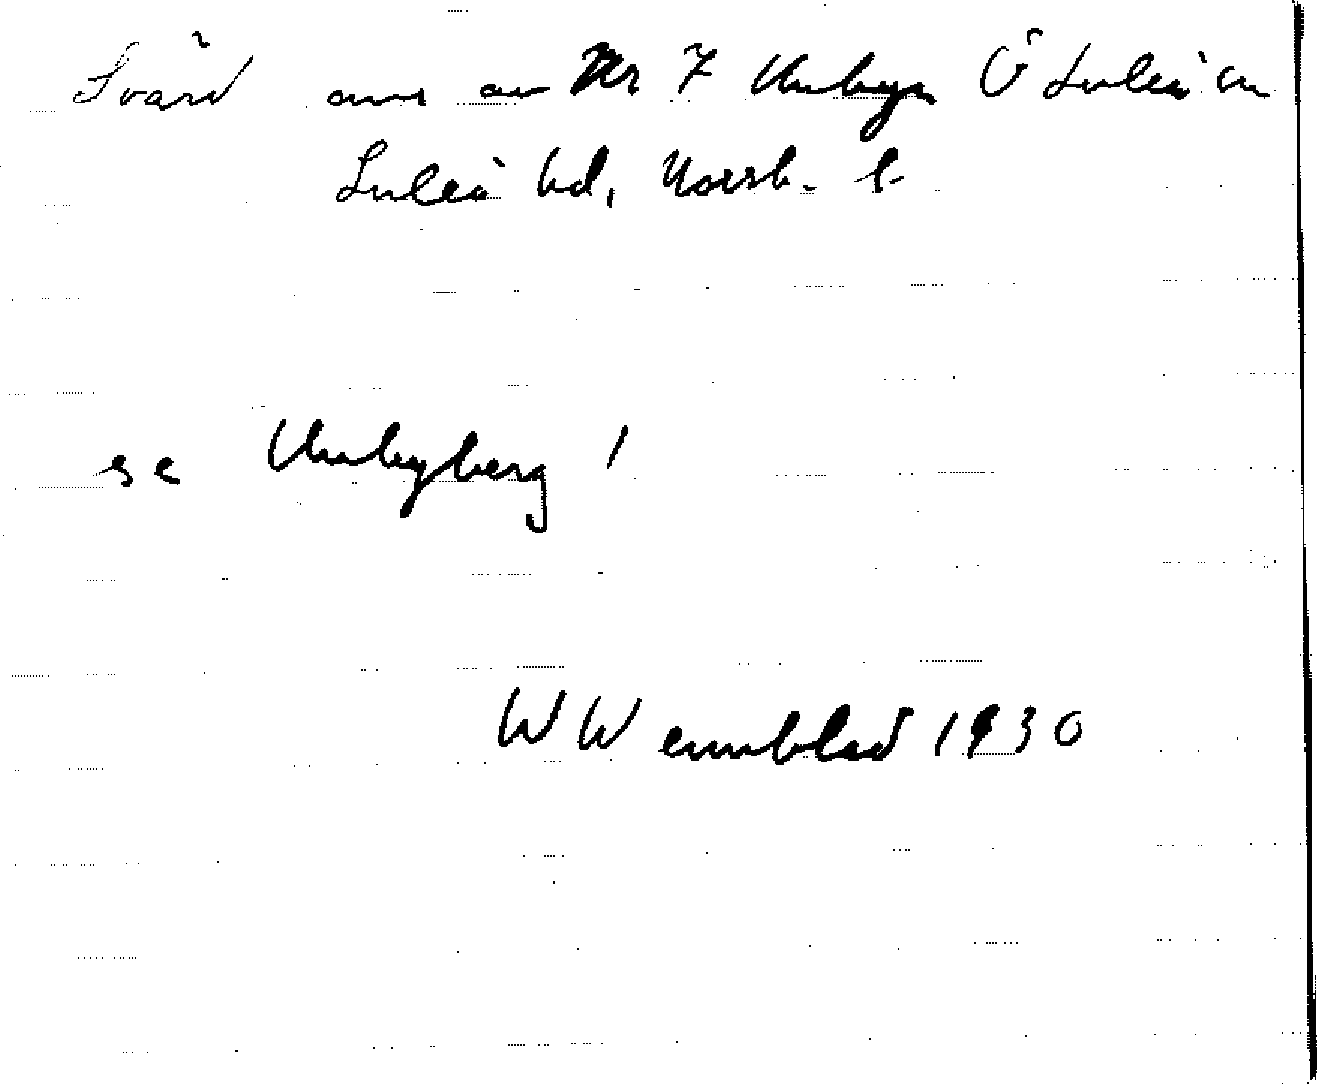 Svärd ann av Nr 7 Unbyn Ö Luleå sn
Luleå td, Norrb. l.
se Unbyberg!
W Wennblad 1930